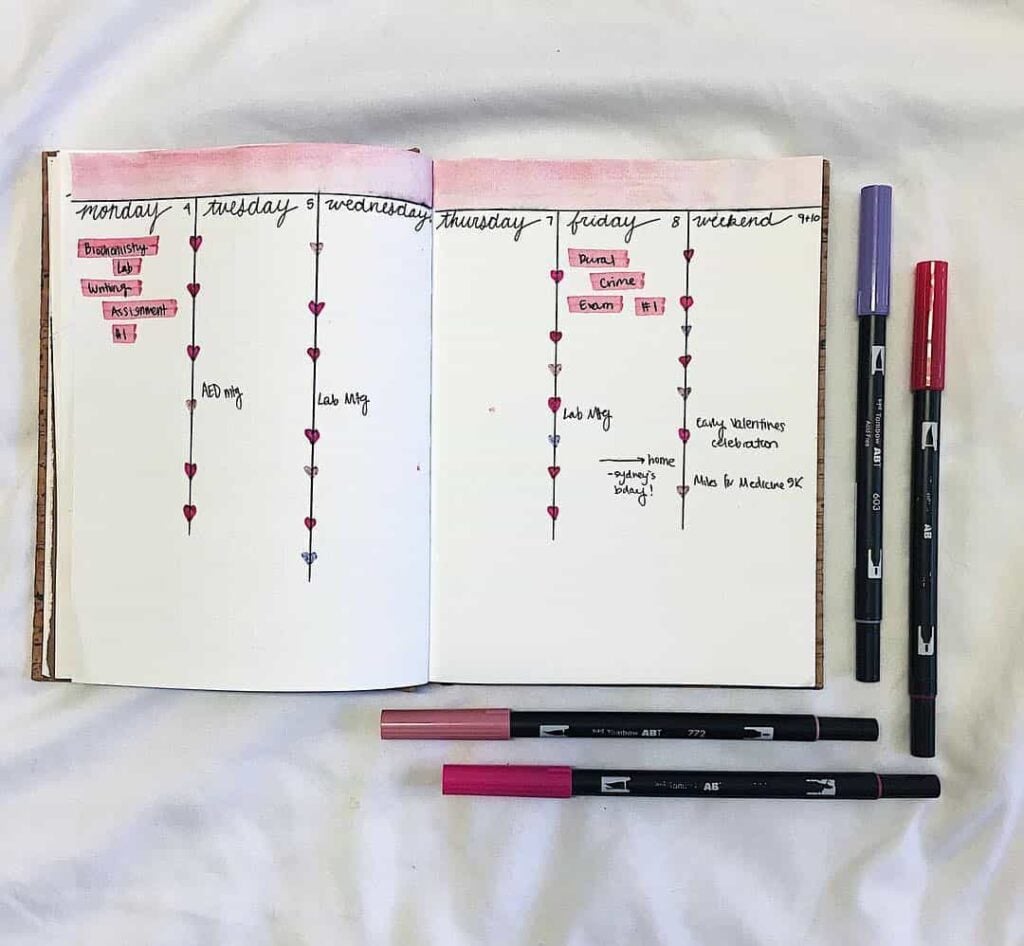 monday 4
tuesday 5
wednesday
Biochemistry
Lab
Writing
Assignment
#1
AED mtg
Lab Mtg
thursday 7
friday 8
weekend 9+10
Rural
Crime
Exam #1
Lab Mtg
→ home
-sydney's
bday!
Early Valentines
celebration
Miles for Medicine 5K
Tombow ABT
603
AB
Tombow ABT 772
AB